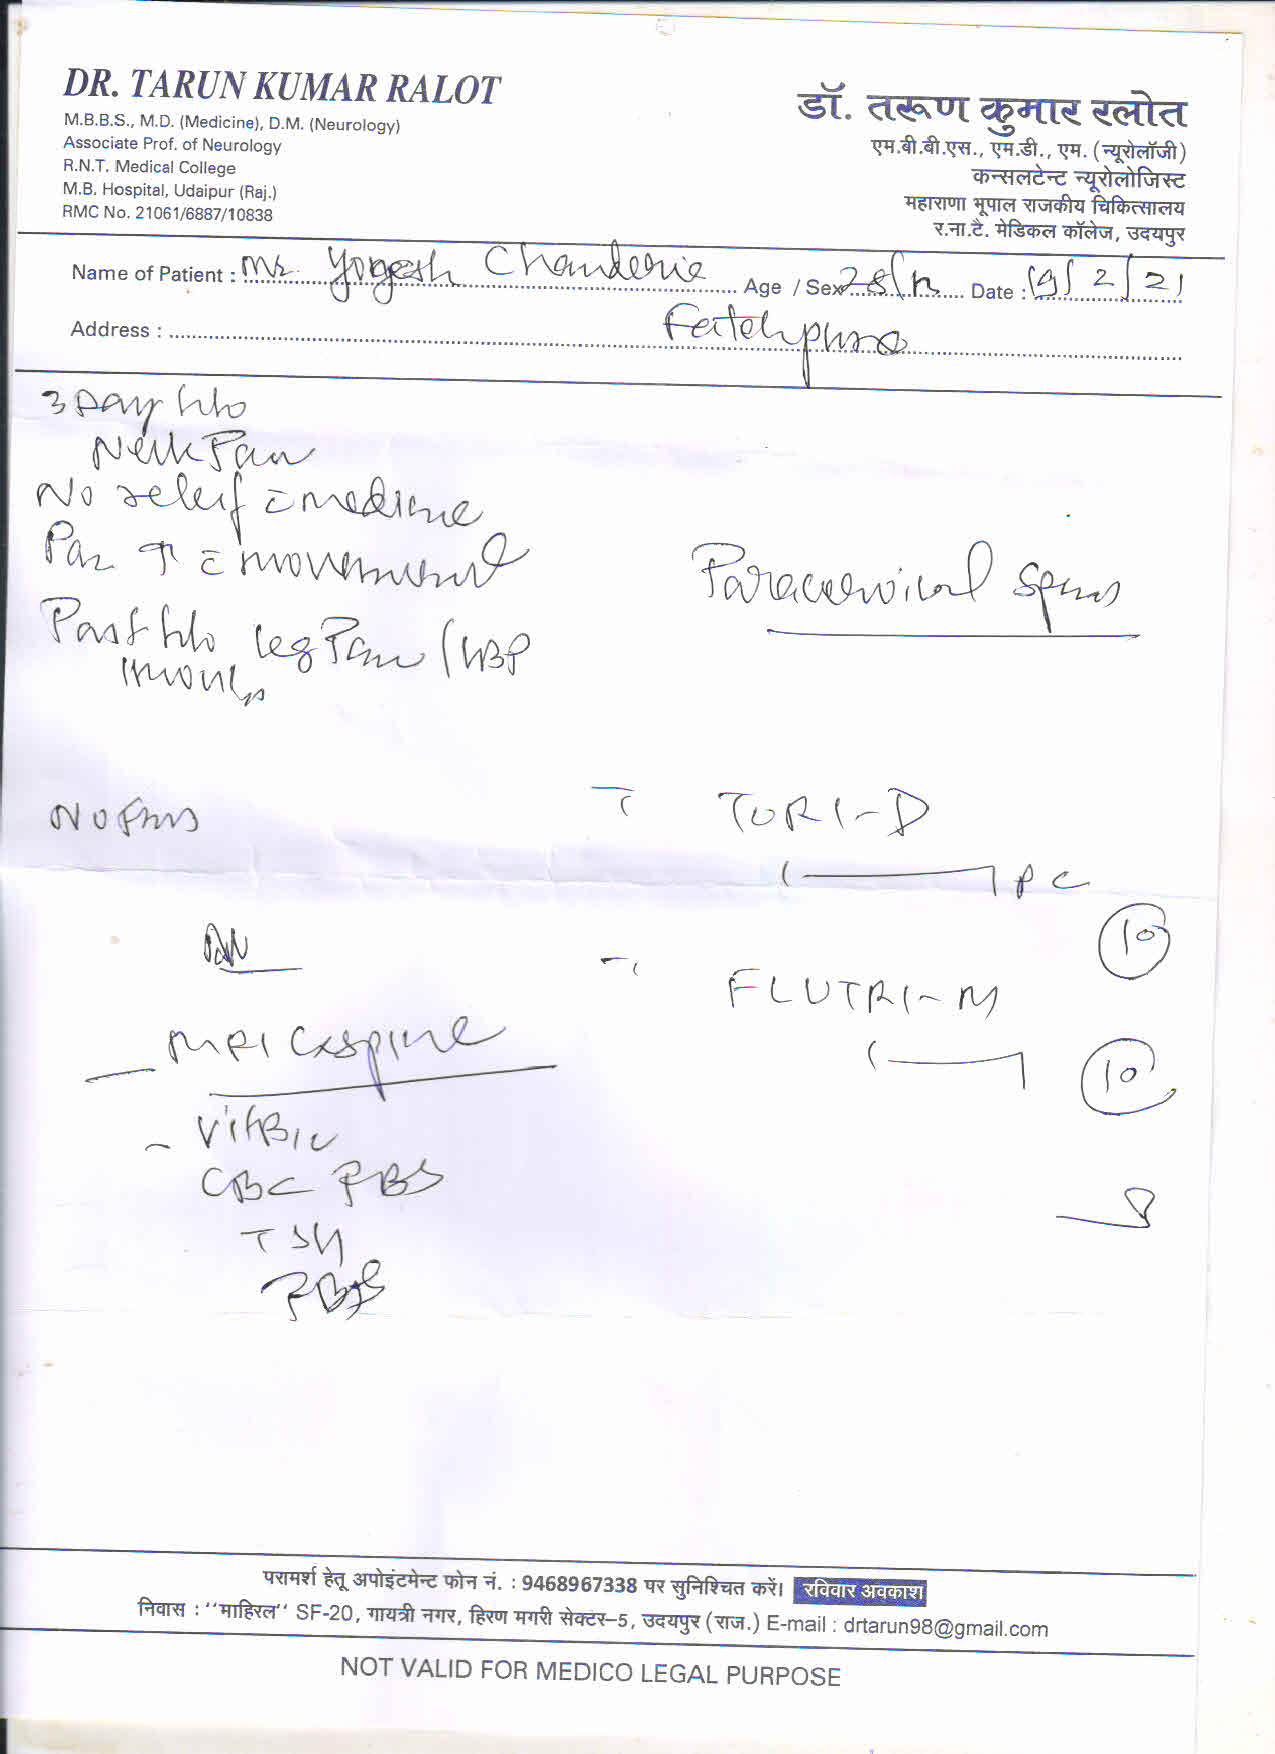 DR. TARUN KUMAR RALOT
M.B.B.S., M.D. (Medicine), D.M. (Neurology)
Associate Prof. of Neurology
R.N.T. Medical College
M.B. Hospital, Udaipur (Raj.)
RMC No. 21061/6887/10838
डॉ. तरूण कुमार रलोत
एम.बी.बी.एस., एम.डी., एम. (न्यूरोलॉजी)
कन्सलटेन्ट न्यूरोलोजिस्ट
महाराणा भूपाल राजकीय चिकित्सालय
र.ना.टै. मेडिकल कॉलेज, उदयपुर
Name of Patient : Mr. Yogesh Chanderia Age / Sex 28/M Date : 19/2/21
Address : Fatehpura
3 Day h/o
Neck Pain
No releif c medicine
Pain ↑ c movement
Paracervical spasm
Past h/o leg Pain / LBP
TORI-D
PC
10
FLUTRI-M
10
MRI Cx spine
Vit B12
CBC PBS
TSH
NOT VALID FOR MEDICO LEGAL PURPOSE
परामर्श हेतू अपोइंटमेन्ट फोन नं. : 9468967338 पर सुनिश्चित करें। रविवार अवकाश
निवास : ''माहिरल'' SF-20, गायत्री नगर, हिरण मगरी सेक्टर–5, उदयपुर (राज.) E-mail : drtarun98@gmail.com